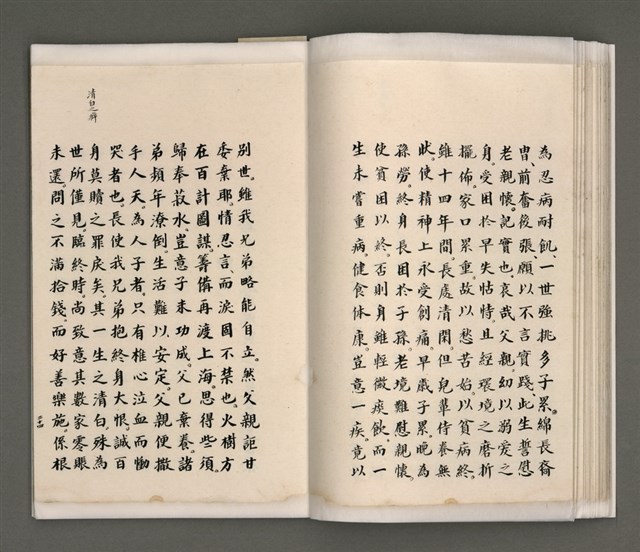 為忍病耐飢、一世強挑多子累。綿長裔
冑、前奮後張、願以不言實踐、此生誓慰
老親懷。記實也。哀哉、父親幼以弱愛之
身、受困於早失怙恃、且經環境之磨折
擺佈、家口累重、故以愁苦始、以貧病終
雖十四年間、長處清閑、但兒輩侍養無
狀、使精神上永受創痛。早歲子累、晚為
孫勞、終身長困於子孫、老境難慰親懷。
使貧困以終、否則身雖輕微痰飲、而一
生未嘗重病、健食体康、豈意一疾、竟以
別世。雖我兄弟略能自立、然父親詎甘
委棄耶。情忍言、而淚固不禁也。火樹方
在百計圖謀、籌備再渡上海、思得些須
歸奉菽水、豈意子未功成、父已棄養。諸
弟頻年潦倒、生活難以安定、父親便撒
手人天、為人子者、只有椎心泣血而慟
哭者也。長使我兄弟抱終身大恨、誠百
身莫贖之罪戾矣。其一生之清白、殊為
世所僅見、臨終時、尚致意其數家零賬
未還、問之不滿拾錢。而好善樂施、係根
清白之癖